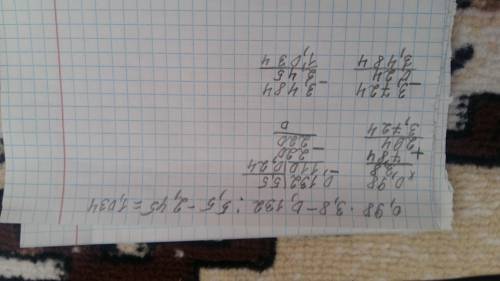 0,98 · 3,8 − 0,132 : 5,5 − 2,45 = 1,034
0,98
× 3,8
784
+
294
3,724
0,132|5,5
− 110|0,24
220
− 220
0
− 3,724
0,24
3,484
− 3,484
2,45
1,034